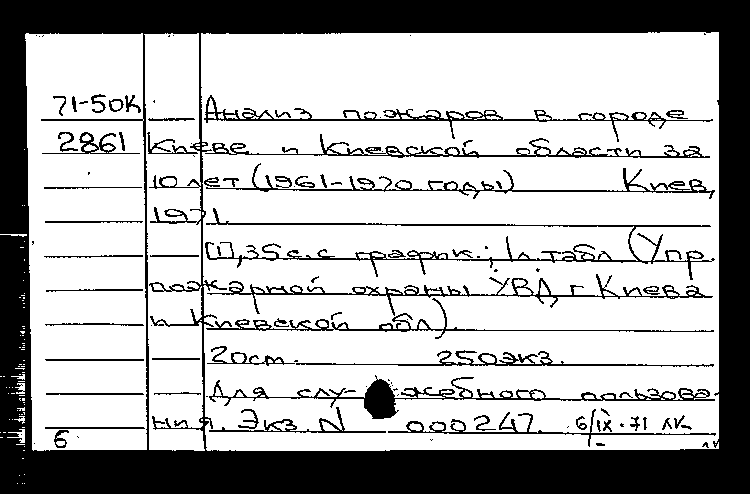 71-50К Анализ пожаров в городе
2861 Киеве и Киевской области за
10 лет (1961-1970 годы) Киев,
1971.
[1], 35 с. с график.; 1 л. табл (Упр.
пожарной охраны УВД г Киева
и Киевской обл).
20см. 250экз.
Для слу- жебного пользова-
ния. Экз. N 000247. 6/IX-71 ЛК
6